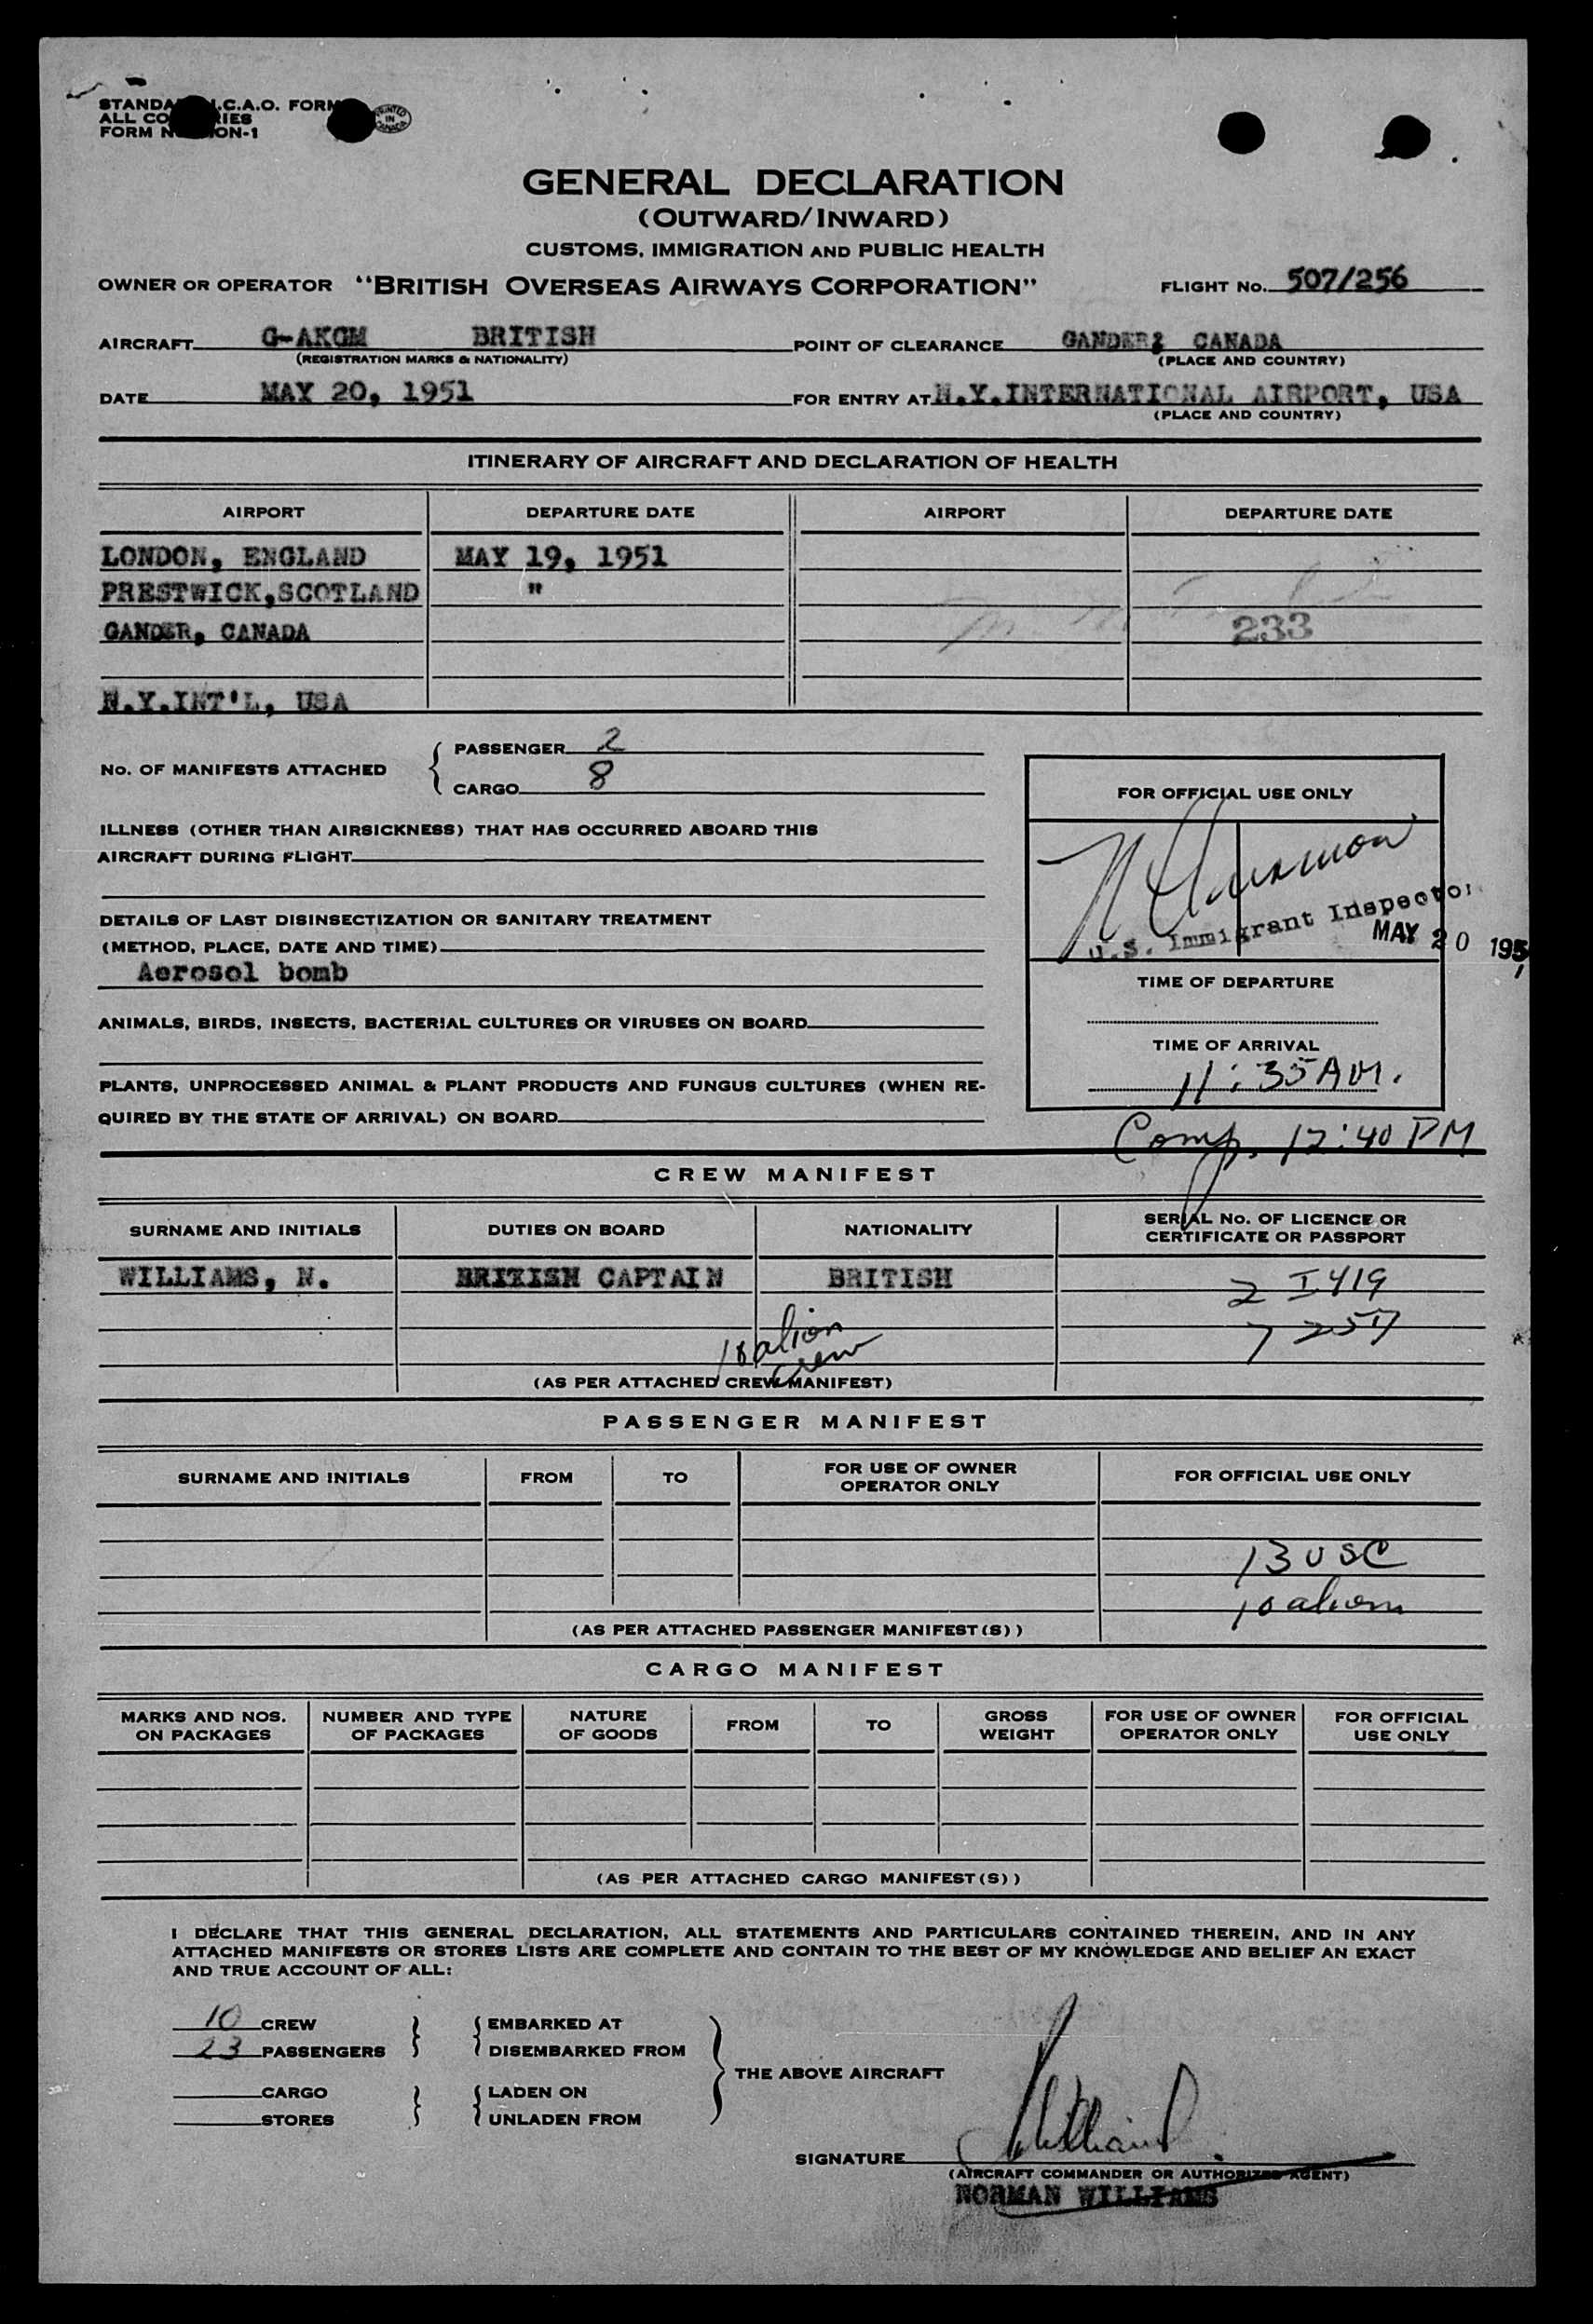 STANDA .C.A.O. FORM
ALL CO RIES
FORM N ON-1
PRINTED IN CANADA
GENERAL DECLARATION
(OUTWARD/INWARD)
CUSTOMS, IMMIGRATION AND PUBLIC HEALTH
OWNER OR OPERATOR "BRITISH OVERSEAS AIRWAYS CORPORATION" FLIGHT No. 507/256
AIRCRAFT G-AKGM BRITISH POINT OF CLEARANCE GANDER, CANADA
(REGISTRATION MARKS & NATIONALITY) (PLACE AND COUNTRY)
DATE MAY 20, 1951 FOR ENTRY AT N.Y.INTERNATIONAL AIRPORT, USA
(PLACE AND COUNTRY)
ITINERARY OF AIRCRAFT AND DECLARATION OF HEALTH
AIRPORT DEPARTURE DATE AIRPORT DEPARTURE DATE
LONDON, ENGLAND MAY 19, 1951
PRESTWICK,SCOTLAND "
GANDER, CANADA 233
N.Y.INT'L, USA
No. OF MANIFESTS ATTACHED { PASSENGER 2
CARGO 8
FOR OFFICIAL USE ONLY
ILLNESS (OTHER THAN AIRSICKNESS) THAT HAS OCCURRED ABOARD THIS
AIRCRAFT DURING FLIGHT
DETAILS OF LAST DISINSECTIZATION OR SANITARY TREATMENT
U.S. Immigrant Inspector
(METHOD, PLACE, DATE AND TIME) MAY 20 1951
Aerosol bomb
TIME OF DEPARTURE
ANIMALS, BIRDS, INSECTS, BACTERIAL CULTURES OR VIRUSES ON BOARD
TIME OF ARRIVAL
11:35 AM.
PLANTS, UNPROCESSED ANIMAL & PLANT PRODUCTS AND FUNGUS CULTURES (WHEN RE-
QUIRED BY THE STATE OF ARRIVAL) ON BOARD
Comp. 12:40 PM
CREW MANIFEST
SURNAME AND INITIALS DUTIES ON BOARD NATIONALITY SERIAL No. OF LICENCE OR
CERTIFICATE OR PASSPORT
WILLIAMS, N. BRITISH CAPTAIN BRITISH 2 I 419
7 257
10 alien
crew
(AS PER ATTACHED CREW MANIFEST)
PASSENGER MANIFEST
SURNAME AND INITIALS FROM TO FOR USE OF OWNER
OPERATOR ONLY FOR OFFICIAL USE ONLY
13 USC
10 aliens
(AS PER ATTACHED PASSENGER MANIFEST(S))
CARGO MANIFEST
MARKS AND NOS.
ON PACKAGES NUMBER AND TYPE
OF PACKAGES NATURE
OF GOODS FROM TO GROSS
WEIGHT FOR USE OF OWNER
OPERATOR ONLY FOR OFFICIAL
USE ONLY
(AS PER ATTACHED CARGO MANIFEST(S))
I DECLARE THAT THIS GENERAL DECLARATION, ALL STATEMENTS AND PARTICULARS CONTAINED THEREIN, AND IN ANY
ATTACHED MANIFESTS OR STORES LISTS ARE COMPLETE AND CONTAIN TO THE BEST OF MY KNOWLEDGE AND BELIEF AN EXACT
AND TRUE ACCOUNT OF ALL:
10 CREW EMBARKED AT
23 PASSENGERS DISEMBARKED FROM
THE ABOVE AIRCRAFT
CARGO LADEN ON
STORES UNLADEN FROM
SIGNATURE N Williams
(AIRCRAFT COMMANDER OR AUTHORIZED AGENT)
NORMAN WILLIAMS